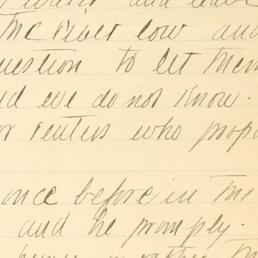 water and leave
the river low and
question to let them
and we do not know.
or renters who propo
once before in the
and he promply.